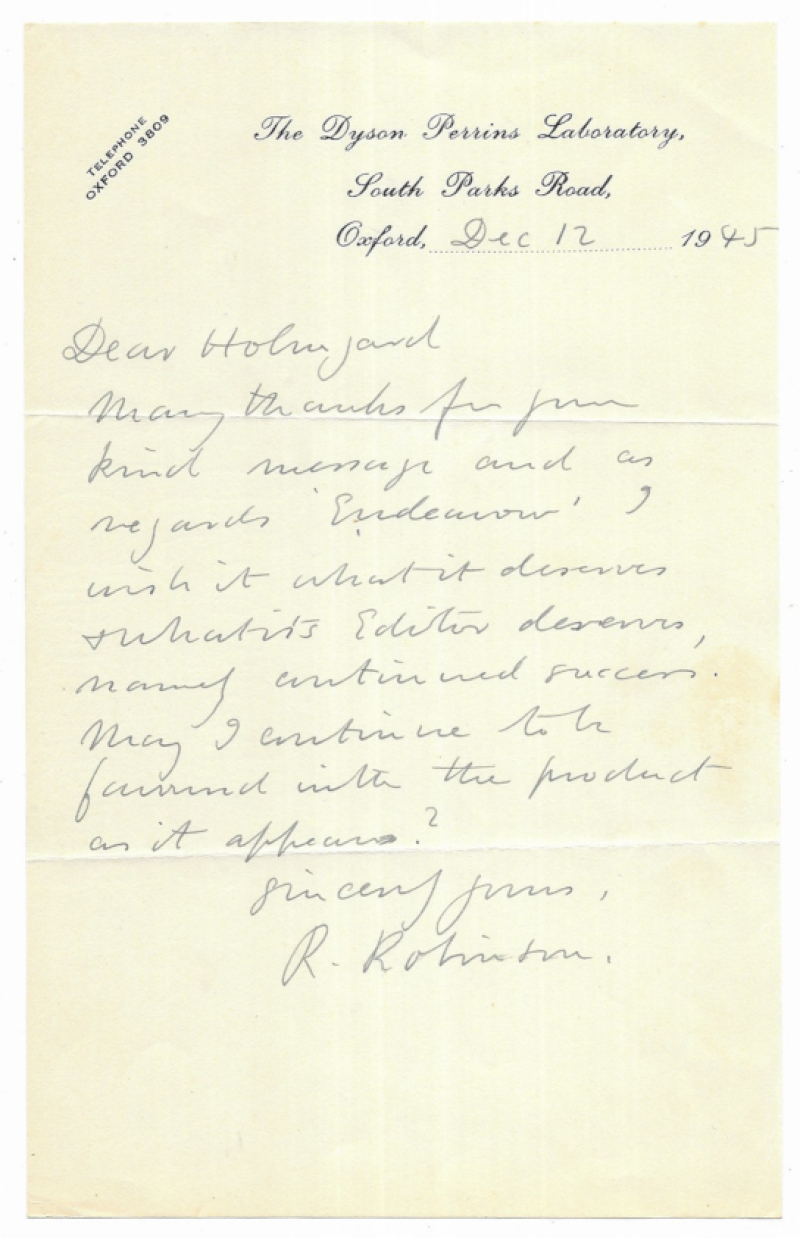 TELEPHONE
OXFORD 3809
The Dyson Perrins Laboratory,
South Parks Road,
Oxford, Dec 12 1945
Dear Holmyard
Many thanks for your
kind message and as
regards 'Endeavour' I
wish it what it deserves
& what its Editor deserves,
namely continued success.
May I continue to be
favoured with the product
as it appears?
Sincerely yours,
R. Robinson.